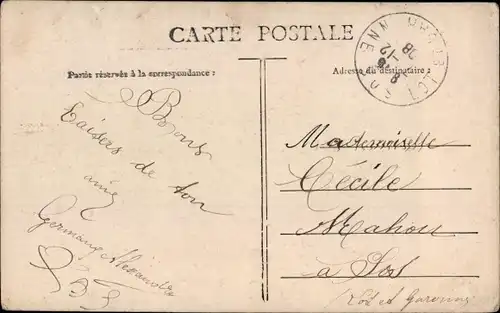 CARTE POSTALE
Partie réservée à la correspondance :
Adresse du destinataire :
Bons
baisers de ton
amie
Germaine Alexandre
Mademoiselle
Cécile
Mahou
à Sos
Lot et Garonne